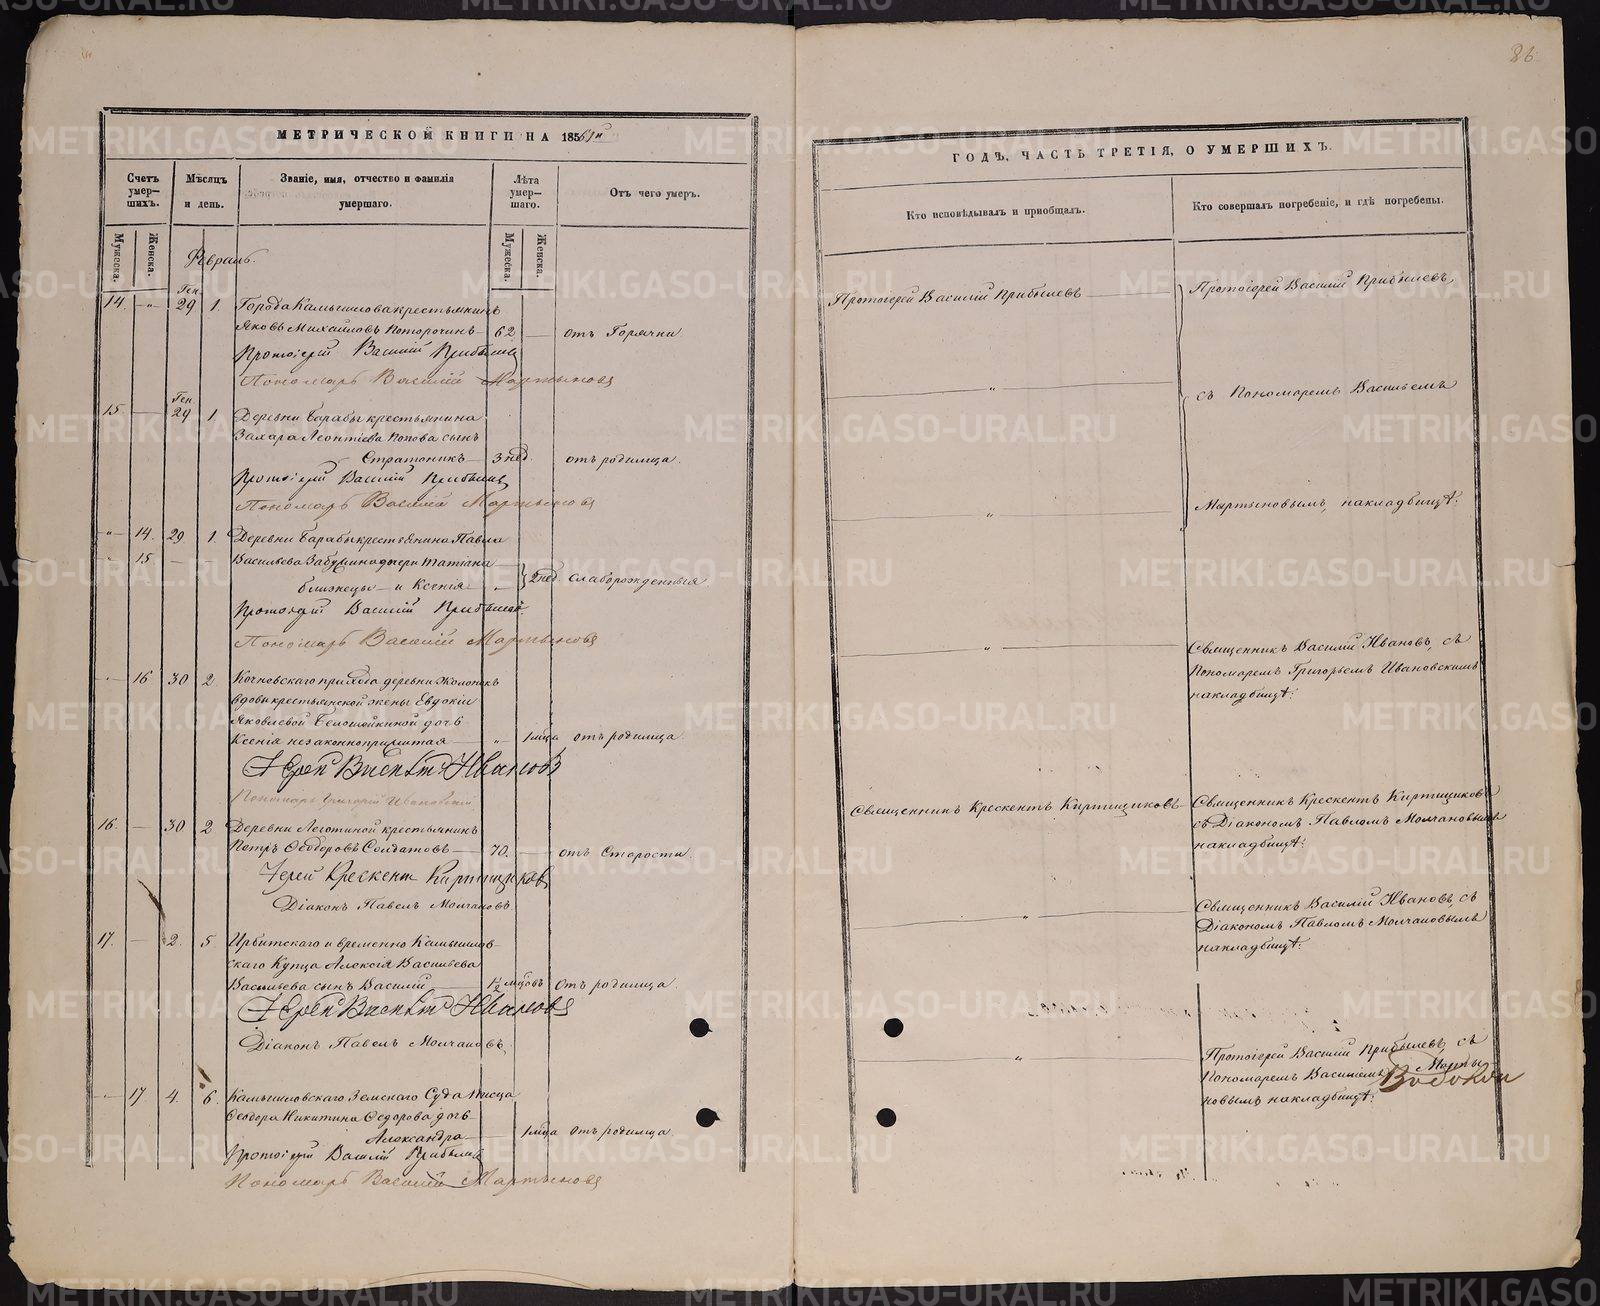 86
МЕТРИЧЕСКОЙ КНИГИ НА 1861й
Счетъ умер-шихъ.
Мѣсяцъ и день.
Званіе, имя, отчество и фамилія умершаго.
Лѣта умер-шаго.
Отъ чего умеръ.
Мужеска.
Женска.
Мужеска.
Женска.
Февраль.
Ген.
14. — 29 1. Города Камышлова крестьянинъ
Яковъ Михайловъ Поторочинъ — 62 — отъ Горячки
Протоіерей Василій Прибылевъ
Пономарь Василій Мартыновъ
Ген
15 — 29 1. Деревни Барабы крестьянина
Захара Леонтіева Попова сынъ
Стратоникъ — 3 нед. отъ родимца.
Протоіерей Василій Прибылевъ
Пономарь Василій Мартыновъ
" 14. 29 1. Деревни Барабы крестьянина Павла
" 15 — — Васильева Забужина дочери Татіана —
близнецы — и Ксенія — 2 нед. слаборожденныя.
Протоіерей Василій Прибылевъ
Пономарь Василій Мартыновъ
— 16 30 2. Кочневскаго прихода деревни
вдовы крестьянской жены Евдокіи
Яковлевой Белошейкиной дочь
Ксенія незаконноприжитая — " 1 мѣца отъ родимца.
Іерей Василій Ивановъ
Пономарь Григорій Ивановскій
16. — 30 2 Деревни Леготиной крестьянинъ
Петръ Ѳеодоровъ Солдатовъ — 70. — отъ Старости.
Іерей Крескентъ Киртищиковъ
Діаконъ Павелъ Молчановъ
17. — 2. 5 Ирбитскаго и временно Камышлов-
скаго Купца Алексія Васильева
Васильева сынъ Василій — 1½ мѣцовъ Отъ родимца.
Іерей Василій Ивановъ
Діаконъ Павелъ Молчановъ,
— 17 4. 6. Камышловскаго Земскаго Суда писца
Ѳеодора Никитина Ѳедорова дочь
Александра — 1 мѣца отъ родимца.
Протоіерей Василій Прибылевъ
Пономарь Василій Мартыновъ
ГОДЪ, ЧАСТЬ ТРЕТІЯ, О УМЕРШИХЪ.
Кто исповѣдывалъ и пріобщалъ.
Кто совершалъ погребеніе, и гдѣ погребены.
Протоіерей Василій Прибылевъ
Протоіерей Василій Прибылевъ,
съ Пономаремъ Василіемъ
Мартыновымъ, на кладбищѣ.
Священникъ Василій Ивановъ, съ
Пономаремъ Григорьемъ Ивановскимъ
на кладбищѣ.
Священникъ Крескентъ Киртищиковъ
Священникъ Крескентъ Киртищиковъ
съ Діакономъ Павломъ Молчановымъ
на кладбищѣ.
Священникъ Василій Ивановъ, съ
Діакономъ Павломъ Молчановымъ
на кладбищѣ.
Протоіерей Василій Прибылевъ, съ
Пономаремъ Василіемъ Марты-
новымъ на кладбищѣ.
METRIKI.GASO-URAL.RU